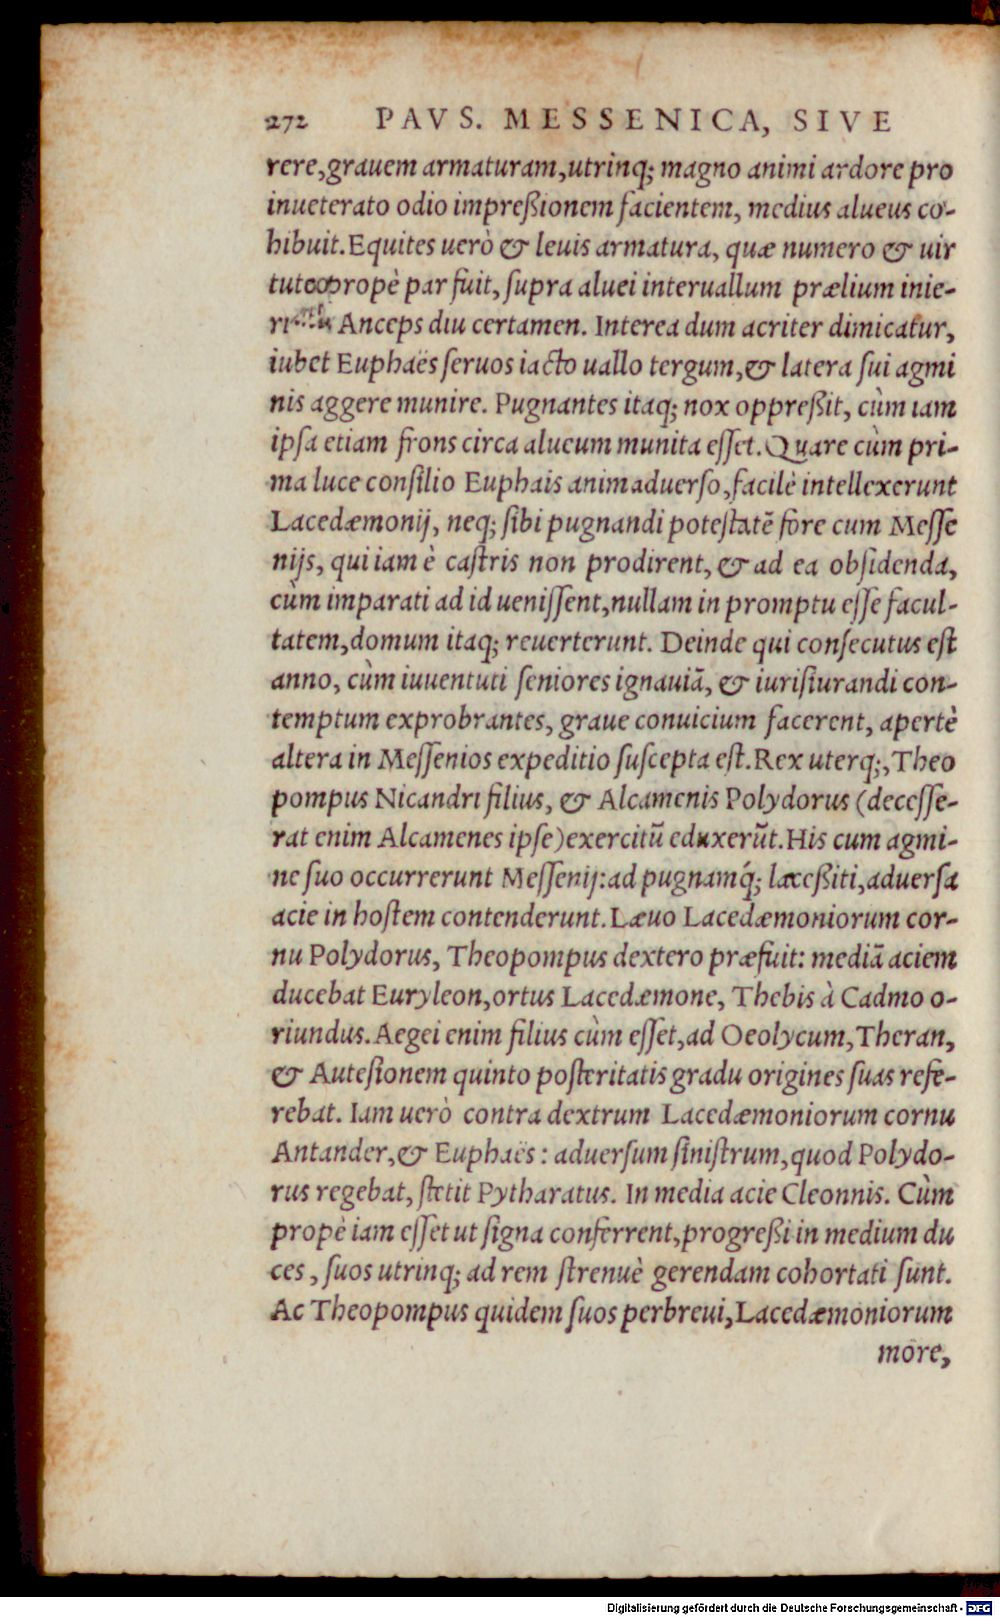 272 PAVS. MESSENICA, SIVE
rere, grauem armaturam, utrinq; magno animi ardore pro
inueterato odio impreßionem facientem, medius alueus co-
hibuit. Equites uerò & leuis armatura, quæ numero & uir
tute propè par fuit, supra aluei interuallum prælium inie-
Anceps diu certamen. Interea dum acriter dimicatur,
iubet Euphaës seruos iacto uallo tergum, & latera sui agmi
nis aggere munire. Pugnantes itaq; nox oppreßit, cùm iam
ipsa etiam frons circa alueum munita esset. Quare cùm pri-
ma luce consilio Euphais animaduerso, facilè intellexerunt
Lacedæmonij, neq; sibi pugnandi potestatẽ fore cum Messe
nijs, qui iam è castris non prodirent, & ad ea obsidenda,
cùm imparati ad id uenissent, nullam in promptu esse facul-
tatem, domum itaq; reuerterunt. Deinde qui consecutus est
anno, cùm iuuentuti seniores ignauiã, & iurisiurandi con-
temptum exprobrantes, graue conuicium facerent, apertè
altera in Messenios expeditio suscepta est. Rex uterq;, Theo
pompus Nicandri filius, & Alcamenis Polydorus (decesse-
rat enim Alcamenes ipse) exercitũ eduxerũt. His cum agmi-
ne suo occurrerunt Messenij: ad pugnamq́; laceßiti, aduersa
acie in hostem contenderunt. Læuo Lacedæmoniorum cor-
nu Polydorus, Theopompus dextero præfuit: mediã aciem
ducebat Euryleon, ortus Lacedæmone, Thebis à Cadmo o-
riundus. Aegei enim filius cùm esset, ad Oeolycum, Theran,
& Autesionem quinto posteritatis gradu origines suas refe-
rebat. Iam uerò contra dextrum Lacedæmoniorum cornu
Antander, & Euphaës: aduersum sinistrum, quod Polydo-
rus regebat, stetit Pytharatus. In media acie Cleonnis. Cùm
propè iam esset ut signa conferrent, progreßi in medium du
ces, suos utrinq; ad rem strenuè gerendam cohortati sunt.
Ac Theopompus quidem suos perbreui, Lacedæmoniorum
more,
Digitalisierung gefördert durch die Deutsche Forschungsgemeinschaft - DFG